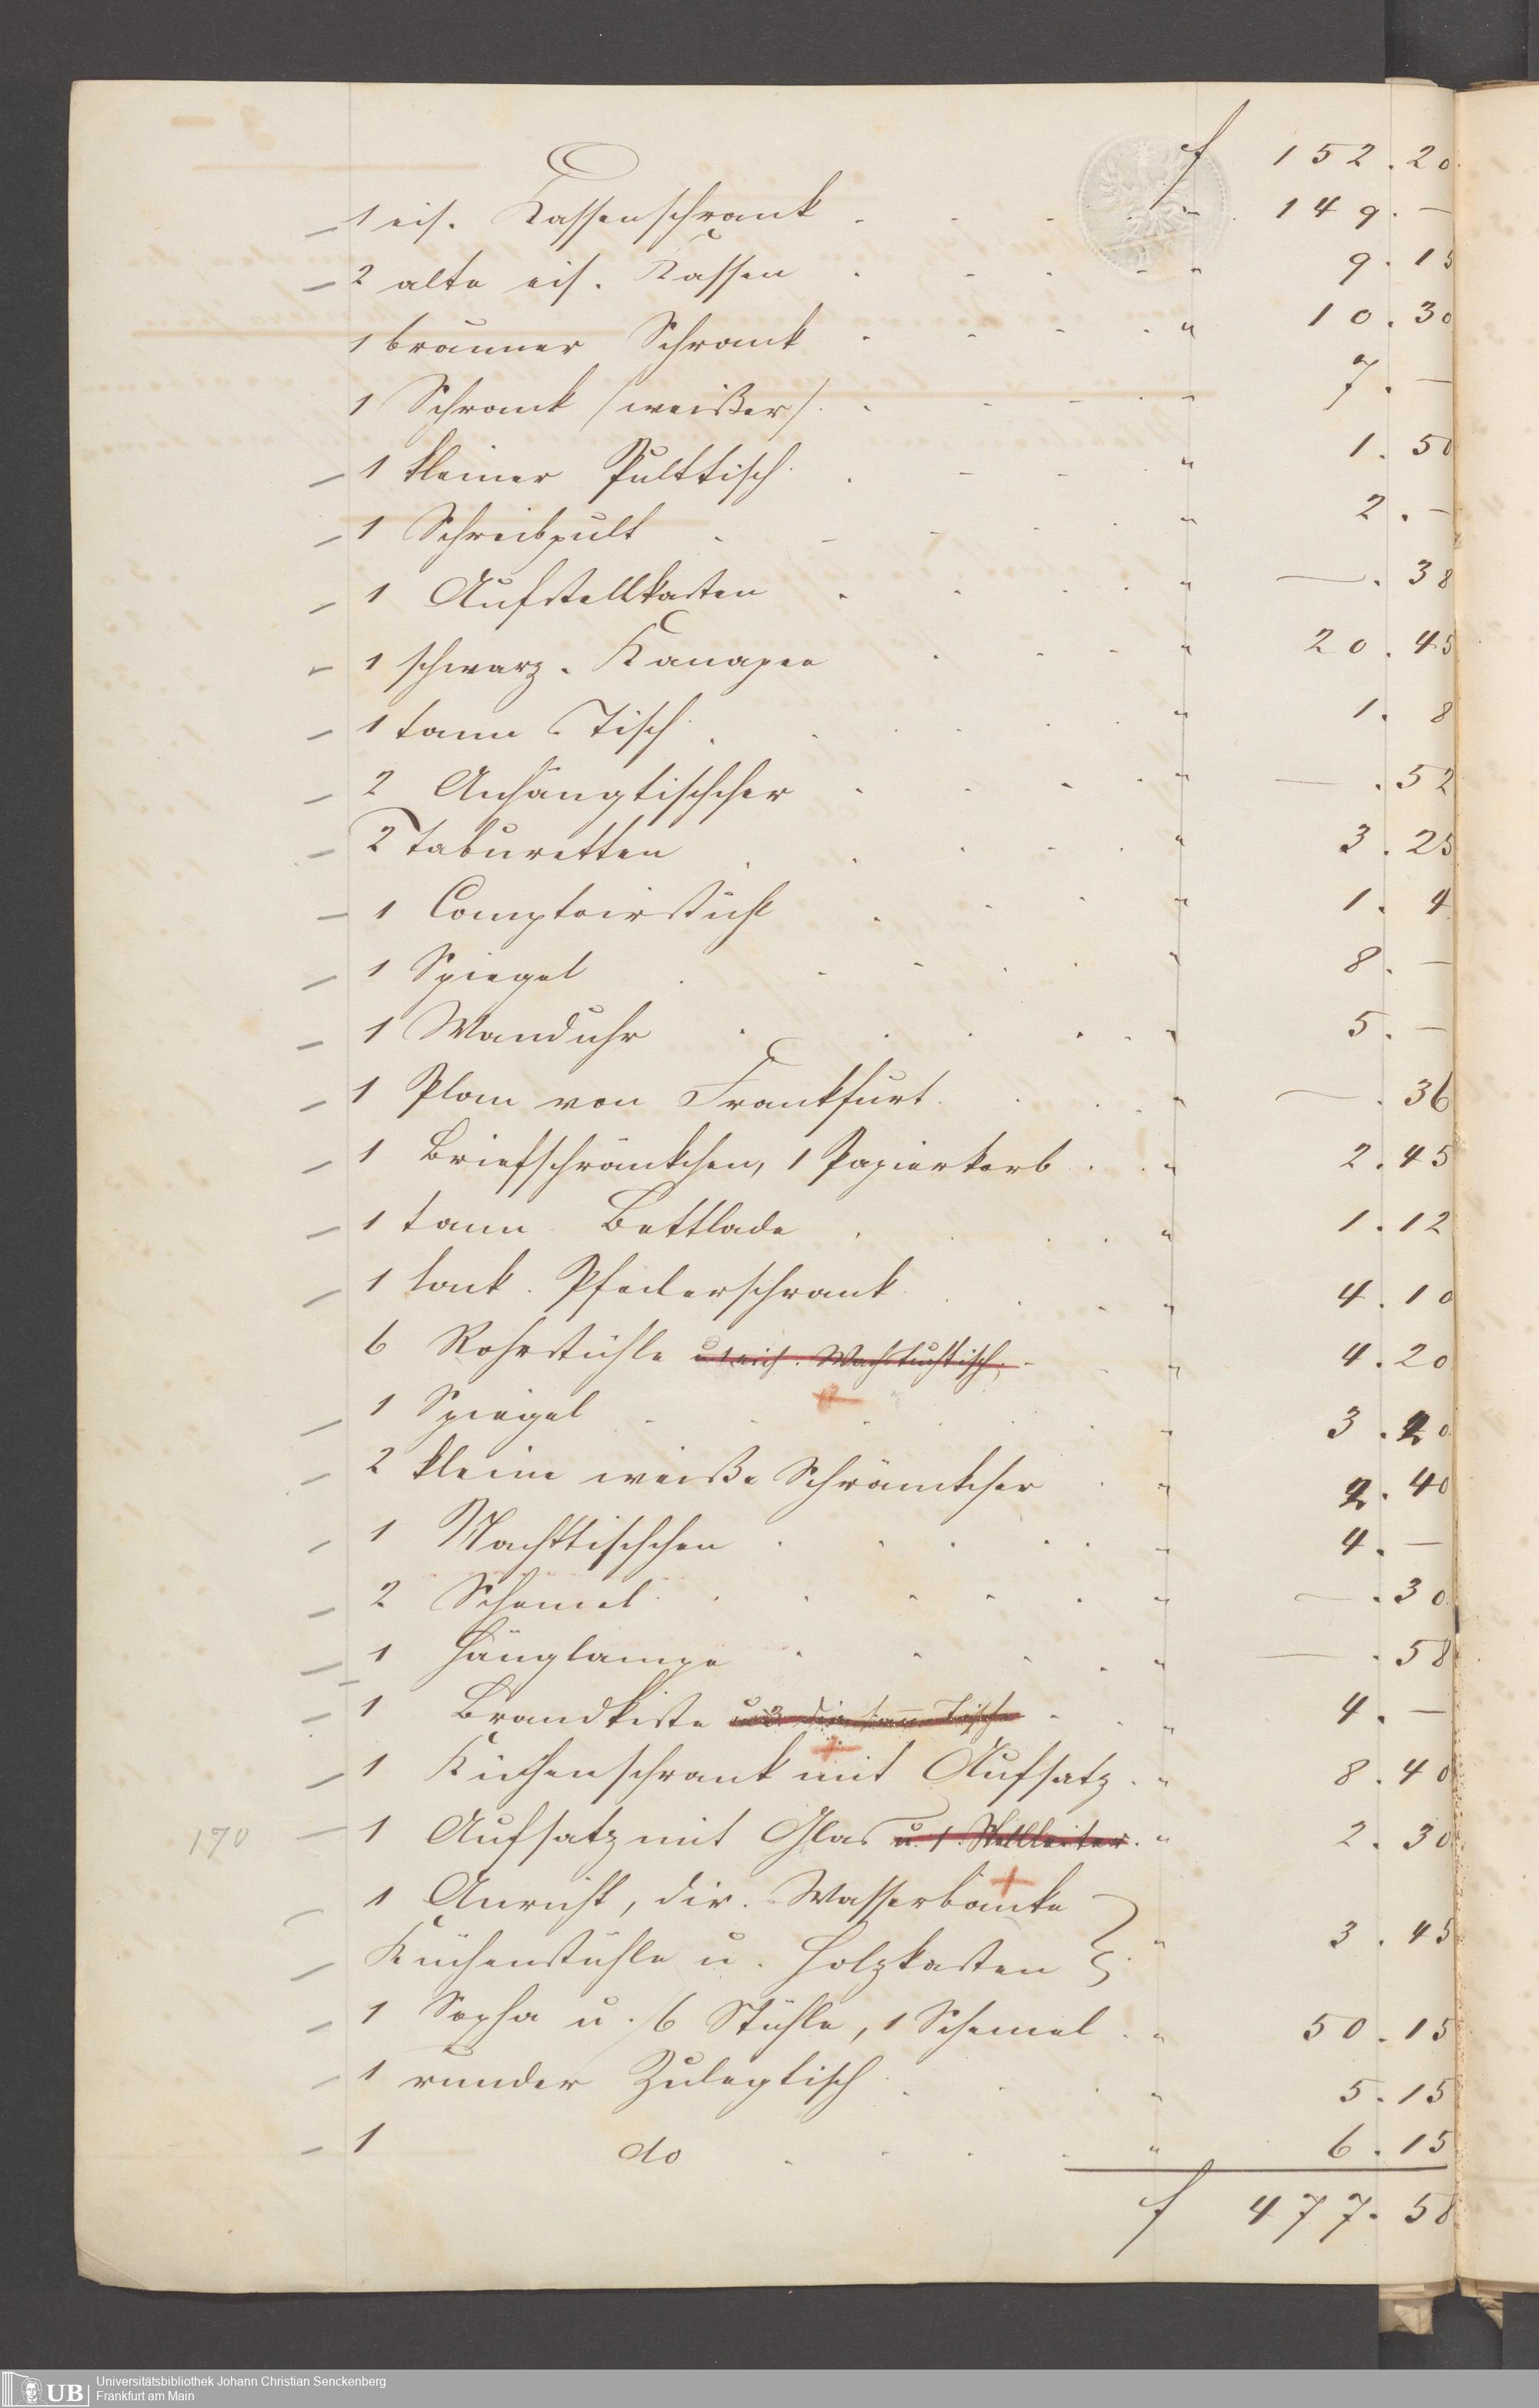 f 152.20
1 eis. Kassenschrank . . . . " 149.—
2 alte eis. Kassen . . . . " 9.15
1 brauner Schrank . . . . " 10.30
1 Schrank /weißer/ . . . . " 7.—
1 kleiner Pulttisch . . . . " 1.50
1 Schreibpult . . . . . " 2.—
1 Aufstellkasten . . . . " —.38
1 schwarz. Kanapee . . . " 20.45
1 tann. Tisch . . . . . " 1. 8
2 Anhängtischcher . . . . " —.52
2 Taburetten . . . . . " 3.25
1 Comptoirstuhl . . . " 1. 4
1 Spiegel . . . . . " 8.—
1 Wanduhr . . . . . " 5.—
1 Plan von Frankfurt . . . . " —.36
1 Briefschränkchen, 1 Papierkorb . . " 2.45
1 tann Bettlade . . . . " 1.12
1 lack. Pfeilerschrank . . . . " 4.10
6 Rohrstühle u 1 eich. Wachstuchtisch . . " 4.20
1 Spiegel . . . . . . " 3.20
2 kleine weiße Schränkcher . " 2.40
1 Nachttischchen . . . . . " 4.—
2 Schemel . . . . . " —.30
1 Hänglampe . . . . " —.58
1 Brandkiste . . " 4.—
1 Küchenschrank mit Aufsatz . " 8.40
170 1 Aufsatz mit Glas u. 1. Stellleiter . " 2.30
1 Anricht, div. Wasserbänke
Küchenstühle u. Holzkasten } " 3.45
1 Sopha u. 6 Stühle, 1 Schemel . " 50.15
1 runder Zulegtisch . . . " 5.15
1 do . . . . " 6.15
f 477.58
Universitätsbibliothek Johann Christian Senckenberg
Frankfurt am Main
UB